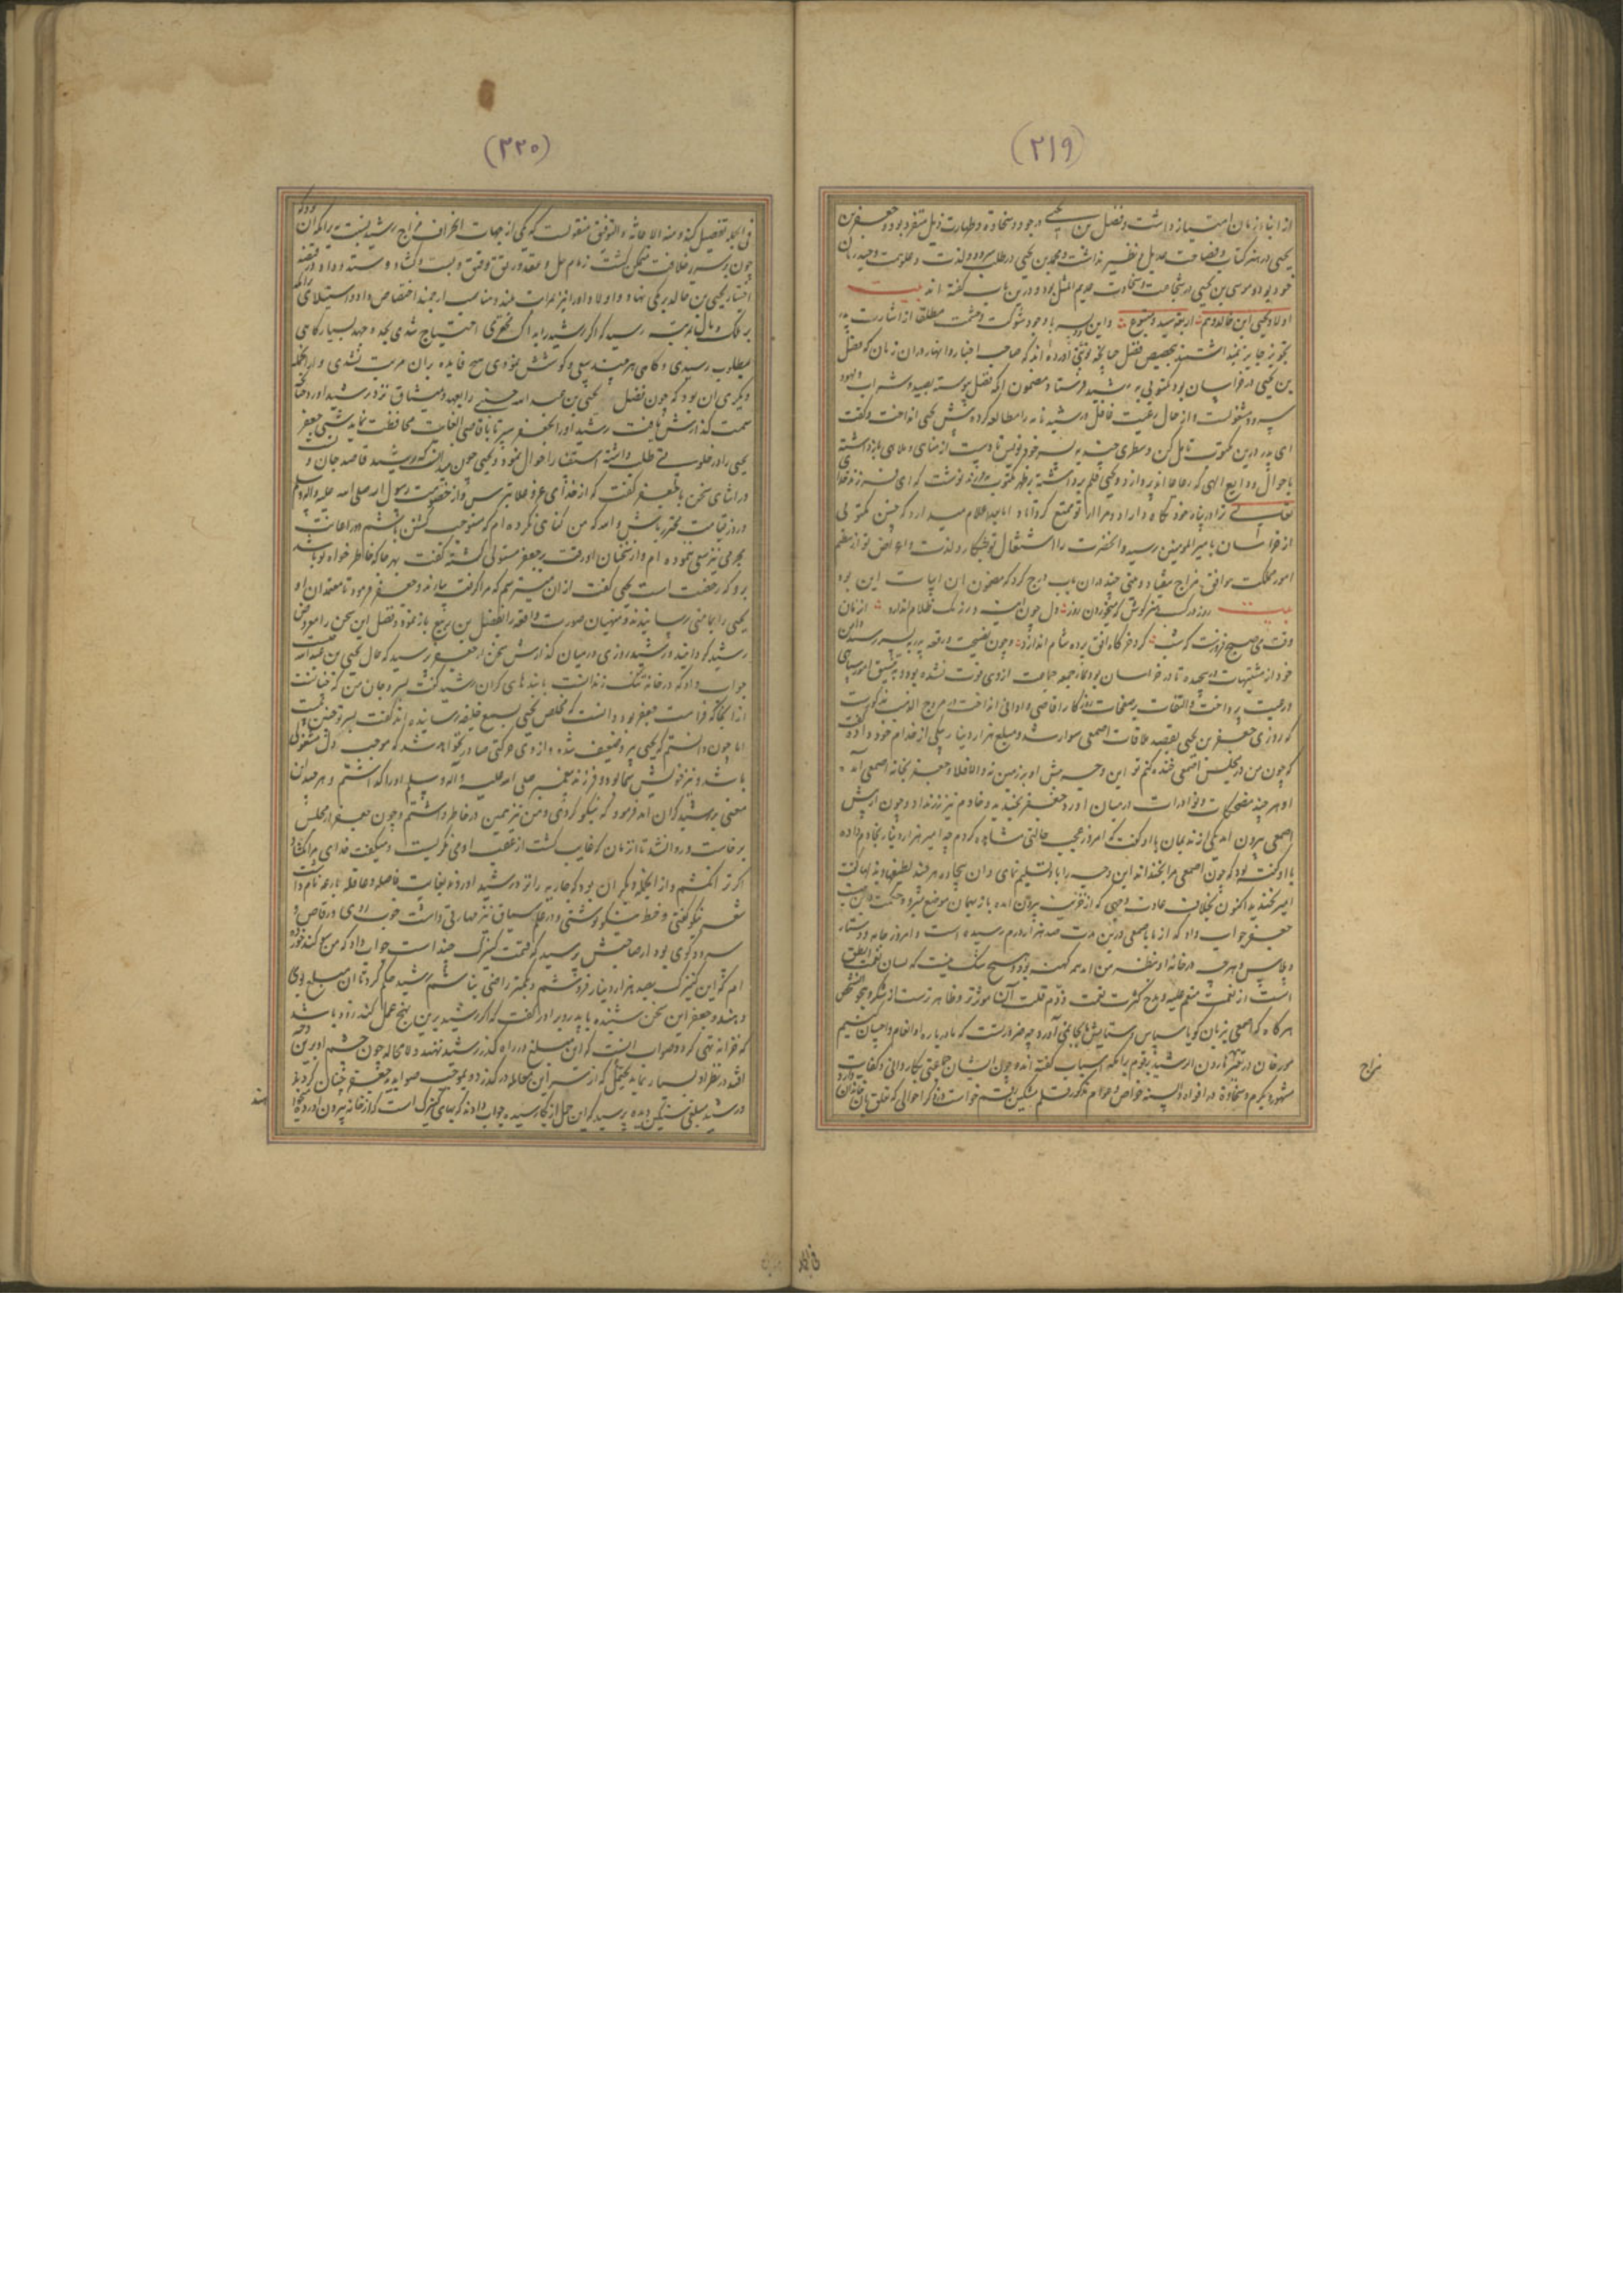 (۲۱۹)
از ابنا زمان امتیاز داشت و فضل بن یحیی در جود و سخاوة و طهارت ذیل متفرد بود و جعفر بن
یحیی در هنر کتابت و فصاحت عدیل و نظیر نداشت و محمد بن یحیی در طلب سرود و لذت و علو همت وحید زمان
خود بود و موسی بن یحیی در شجاعت و سخاوت عدیم المثل بود و درین باب گفته اند بیت
اولاد یحیی ابن خالد و هم اربعة سید و متبوع و این پسر با وجود شوکت و حشمت مطلقا از اشارت پدر
تجویز جایز نمیداشتند بتخصیص فضل چنانچه آورده اند که صاحب اخبار و انهار دران زمان که فضل
بن یحیی در خراسان بود مکتوبی برشید فرستاد مضمون آنکه فضل پیوسته بصید و شراب و لهو
سرود مشغولست و از حال رعیت غافل و رشید نامه را مطالعه کرده پیش یحیی انداخت و گفت
ای پدر درین مکتوب تامل کن و سطری چند به پسر خود نویس تا دست از مناهی و ملاهی بازداشته
باحوال ودایع الهی که رعایااند پردازد و یحیی قلم برداشته بر ظهر مکتوب فرزند نوشت که ای فرزند خدای
تعالی ترا در پناه خود نگاه دارد و مرا از تو متمتع گرداناد اما بعد اعلام میدارد که چنین مکتوبی
از خراسان بامیر المومنین رسید و آنحضرت را اشتغال تو بشکار و لذت و اعراض تو از معظم
امور مملکت موافق مزاج نیفتاد و بیتی چند دران باب درج کرد که مضمون آن ابیات این بود
بیت روز در کسب هنر کوش که میخوردن روز دل چون آینه در زنگ ظلام اندازد آن زمان
وقت می صبح فروغست که شب گرد خرگاه افق پرده شام اندازد و چون نصیحت و رقعه پدر به پسر رسید دامن
خود از مشتهیات درپیچیده تا در خراسان بود نماز جمعه جماعت از وی فوت نشده بود و به تنسیق امور سپاهی
و رعیت پرداخت و التفات بر صفحات روزگار اقاصی و ادانی انداخت و در مروج الذهب مذکورست
که روزی جعفر بن یحیی بقصد ملاقات اصمعی سوار شد و مبلغ هزار دینار بیکی از خدام خود داده گفت
که چون من در مجلس اصمعی خنده کنم تو این وجه پیش او بر زمین نه و الا فلا و جعفر بخانه اصمعی آمد
او هر چند مضحکات و نوادرات در میان آورد جعفر نخندید و خادم نیز زر نداد و چون از پیش
اصمعی بیرون آمد یکی از ندیمان با او گفت که امروز عجب حالتی مشاهده کردم چه امیر هزار دینار بخادم داده
با او گفته بود که چون اصمعی مرا بخنداند این وجه را باو تسلیم نمای و آن بیچاره هر چند لطیفها و بذلها گفت
امیر نخندید اکنون بخلاف عادت وجهی که از خزینه بیرون آمده باز بهمان موضع میرود حکمت درین چیست
جعفر جواب داد که از ما باصمعی درین مدت صد هزار درم رسیده است و امروز جامه و دستار
و پلاس و هر چه در خانه او بنظر من آمد همه کهنه بود و هیچ شک نیست که لسان نعمت انطق
است از نعمت منعم علیه و مدح کثرت نعمت و ذم قلت آن موثرتر و ظاهرترست از شکر و هجو شخص
هرگاه که اصمعی بزبان گویا سپاس و ستایش ما بجا نمی آورد چه ضرورتست که ما در باره او انعام و احسان کنیم
مورخان در تغیر هارون الرشید بر قوم برامکه اسباب گفته اند و چون ایشان جماعتی بکاردانی و کفایت
مشهور و بکرم و سخاوة در افواه و السنه خواص و عوام مذکور قلم مشکین رقم خواست که ذکر احوالی که تعلق بآن خاندان دارد
مزاج
فی الجملة
(۲۲۰)
فی الجمله تفصیل کند و منه الاعانة و التوفیق منقولست که یکی از جهات انحراف مزاج رشید نسبت برامکه آن بود که
چون بر سریر خلافت متمکن گشت زمام حل و عقد و رتق و فتق و بست و گشاد و ستد و داد در قبضه
اختیار یحیی بن خالد برمکی نهاد و اولاد او را نیز بمراتب بلند و مناصب ارجمند اختصاص داد و استیلای برامکه
بر ملک و مال بمرتبه رسید که اگر رشید را به اندک خرجی احتیاج شدی بجد و جهد بسیار گاهی
بمطلوب رسیدی و گاهی هر چند سعی و کوشش نمودی هیچ فایده بران مترتب نشدی و از آنجمله
دیگری آن بود که چون فضل یحیی بن عبدالله حسنی را بعهد و میثاق نزد رشید آورد چنانچه
سمت گذارش یافت رشید او را بجعفر سپرد تا باقاصی الغایات محافظت نماید شبی جعفر
یحیی را در خلوتی طلب داشته استفسار احوال نمود و یحیی چون میدانست که رشید قاصد جان اوست
در اثنای سخن با جعفر گفت که از خدای عز و علا بترس و از خصومت رسول الله صلی الله علیه و اله وسلم
در روز قیامت محترز باش والله که من گناهی نکرده ام که مستوجب کشتن باشم و در اعانت
مجرمی نیز سعی ننموده ام و از سخنان او رقت بر جعفر مستولی گشته گفت بهر جا که خاطر خواه تو باشد
برو که رخصت است یحیی گفت از آن میترسم که مرا گرفته بیارند و جعفر فرمود تا معتمدان او
یحیی را بمامنی رسانیدند و منهیان صورت واقعه را بفضل بن ربیع باز نموده و فضل این سخن را معروض
رشید گردانید و رشید روزی در میان گذارش سخن از جعفر پرسید که حال یحیی بن عبدالله چیست
جواب داد که در خانه تنگ زندانست با بندهای گران رشید گفت بسر و جان من که چنانست
از آنجا که فراست جعفر بود دانست که مخلص یحیی بسمع خلیفه رسانیده اند گفت بسر تو چنین نیست
اما چون دانستم که یحیی پیر و ضعیف شده و از وی حرکتی صادر نخواهد شد که موجب دل مشغولی
باشد و نیز خویش شما بود و فرزند پیغمبر صلی الله علیه و اله وسلم او را گذاشتم و هر چند آن
معنی بر رشید گران آمد فرمود که نیکو کردی و من نیز همین در خاطر داشتم و چون جعفر از مجلس
برخاست و روان شد تا آن زمان که غایب گشت از عقب او می نگریست و میگفت خدای مرا بکشاد
اگر ترا نکشم و از آنجمله دیگر آن بود که جاریه را نزد رشید آوردند بغایت فاضله و عاقله بارعه نام داشت
شعر نیکو گفتی و خط نیکو نوشتی و در علم سیاق نیز مهارتی داشت خوب روی و رقاص و
سرود گوی بود از صاحبش پرسید که قیمت کنیزک چند است جواب داد که من سوگند خورده
ام که این کنیزک بصد هزار دینار فروشم و بکمتر راضی نباشم رشید حکم کرد تا آن مبلغ بوی
دهند و جعفر این سخن شنیده با پدر و برادر گفت که اگر رشید برین نهج عمل کند زود باشد
که خزانه تهی گردد و صواب آنست که این مبلغ در راه گذر رشید نهند و لا محاله چون چشم او برین وجه
افتد در نظر او بسیار نماید یحتمل که از سر این معامله در گذرد و بموجب صوابدید جعفر چنان کردند
و رشید مبلغی سنگین دیده پرسید که این حمل از کجا رسیده جواب دادند که بهای کنیزک است که از خانه بیرون آورده بجهة